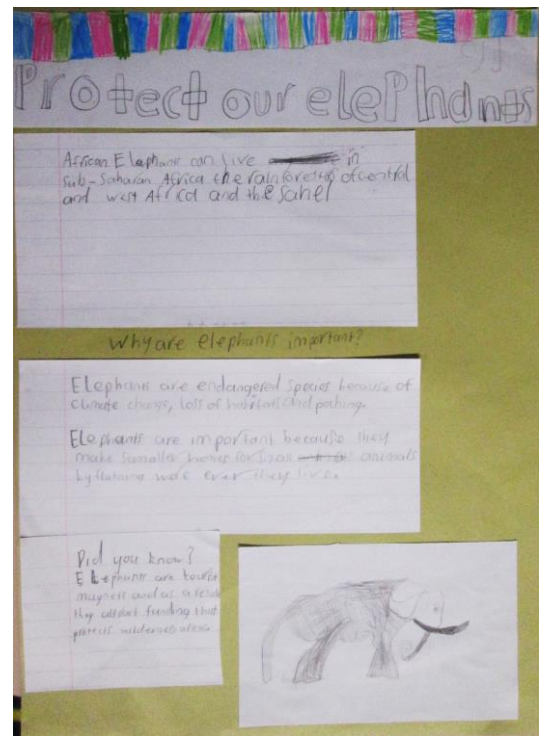 Protect our elephants
African Elephants can live in
sub-Saharan Africa the rainforests of central
and west Africa and the Sahel
Why are elephants important?
Elephants are endangered species because of
climate change, loss of habitats and poching.
Elephants are important because they
make smaller homes for animals
by were ever they live.
Did you know?
Elephants are tourist
magnets and as a result
they attract funding that
protects wilderness areas.